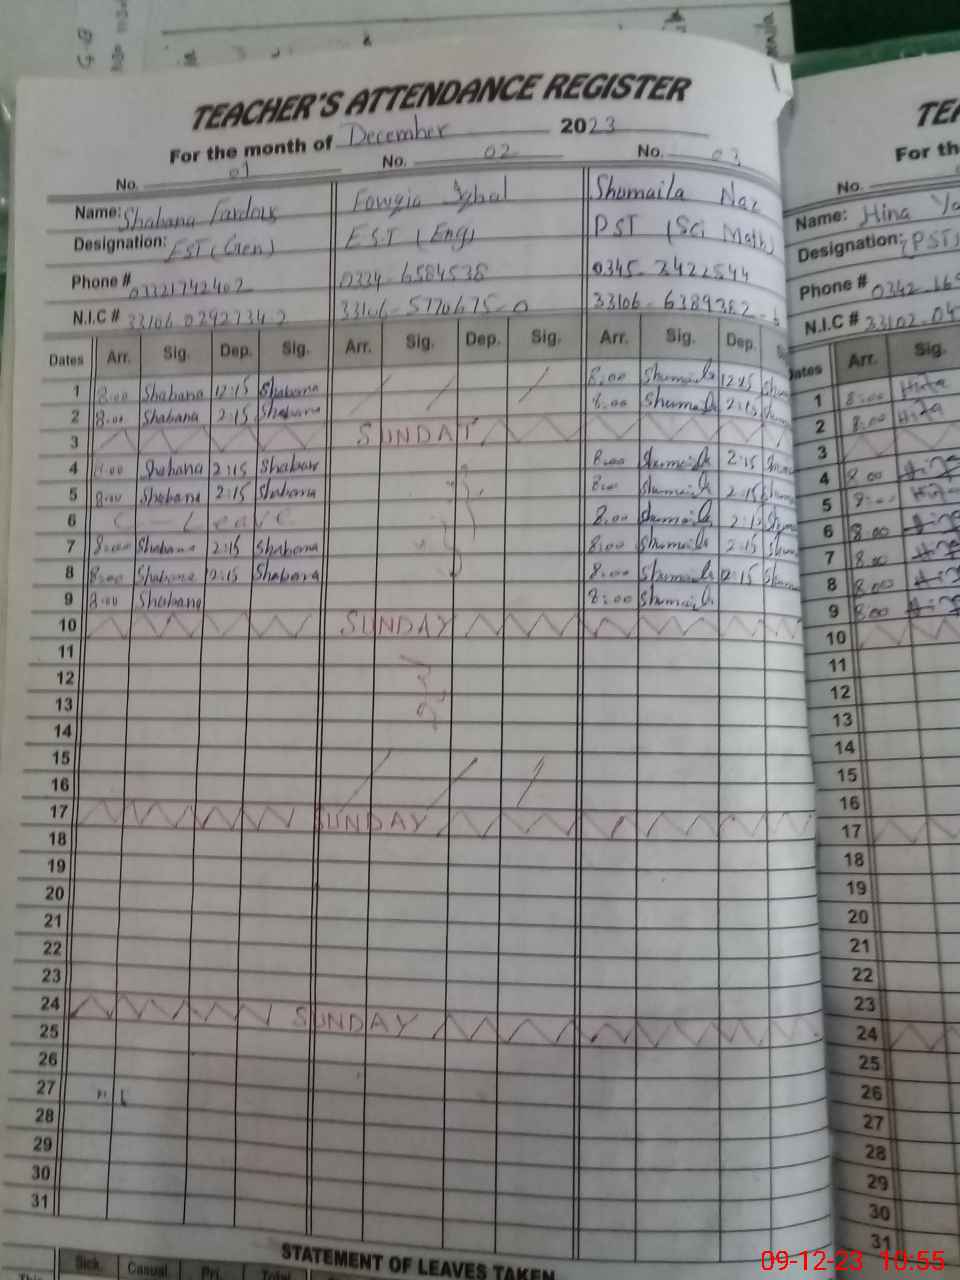 TEACHER'S ATTENDANCE REGISTER
For the month of December 2023
No. 01 No. 02 No. 03
Name: Shabana Fardous Fowzia Iqbal Shumaila Naz
Designation: EST (Gen) EST (Eng) PST (Sci Math)
Phone # 03321742402 0334-6584538 0345-2422544
N.I.C # 33106 33106-5770675-0 33106-6389382-6
Dates Arr. Sig. Dep. Sig. Arr. Sig. Dep. Sig. Arr. Sig. Dep.
1 8:00 Shabana 12:15 Shabana 8:00 Shumaila 12:15
2 8:00 Shabana 2:15 Shabana 8:00 Shumaila 2:15
3 SUNDAY
4 8:00 Shabana 2:15 Shabana 8:00 Shumaila 2:15
5 8:00 Shabana 2:15 Shabana 8:00 Shumaila 2:15
6 C - Leave 8:00 Shumaila 2:15
7 8:00 Shabana 2:15 Shabana 8:00 Shumaila 2:15
8 8:00 Shabana 2:15 Shabana 8:00 Shumaila 2:15
9 8:00 Shabana 8:00 Shumaila
10 SUNDAY
11
12
13
14
15
16
17 SUNDAY
18
19
20
21
22
23
24 SUNDAY
25
26
27
28
29
30
31
STATEMENT OF LEAVES TAKEN
Sick. Casual Pri. Total
For th
No.
Name: Hina
Designation: (PST)
Phone # 0342
N.I.C # 33102
Dates Arr. Sig.
1 8:00 Hina
2 8:00 Hina
3
4 8:00 Hina
5 8:00 Hina
6 8:00 Hina
7 8:00 Hina
8 8:00 Hina
9 8:00 Hina
10
11
12
13
14
15
16
17
18
19
20
21
22
23
24
25
26
27
28
29
30
31
09-12-23 10:55